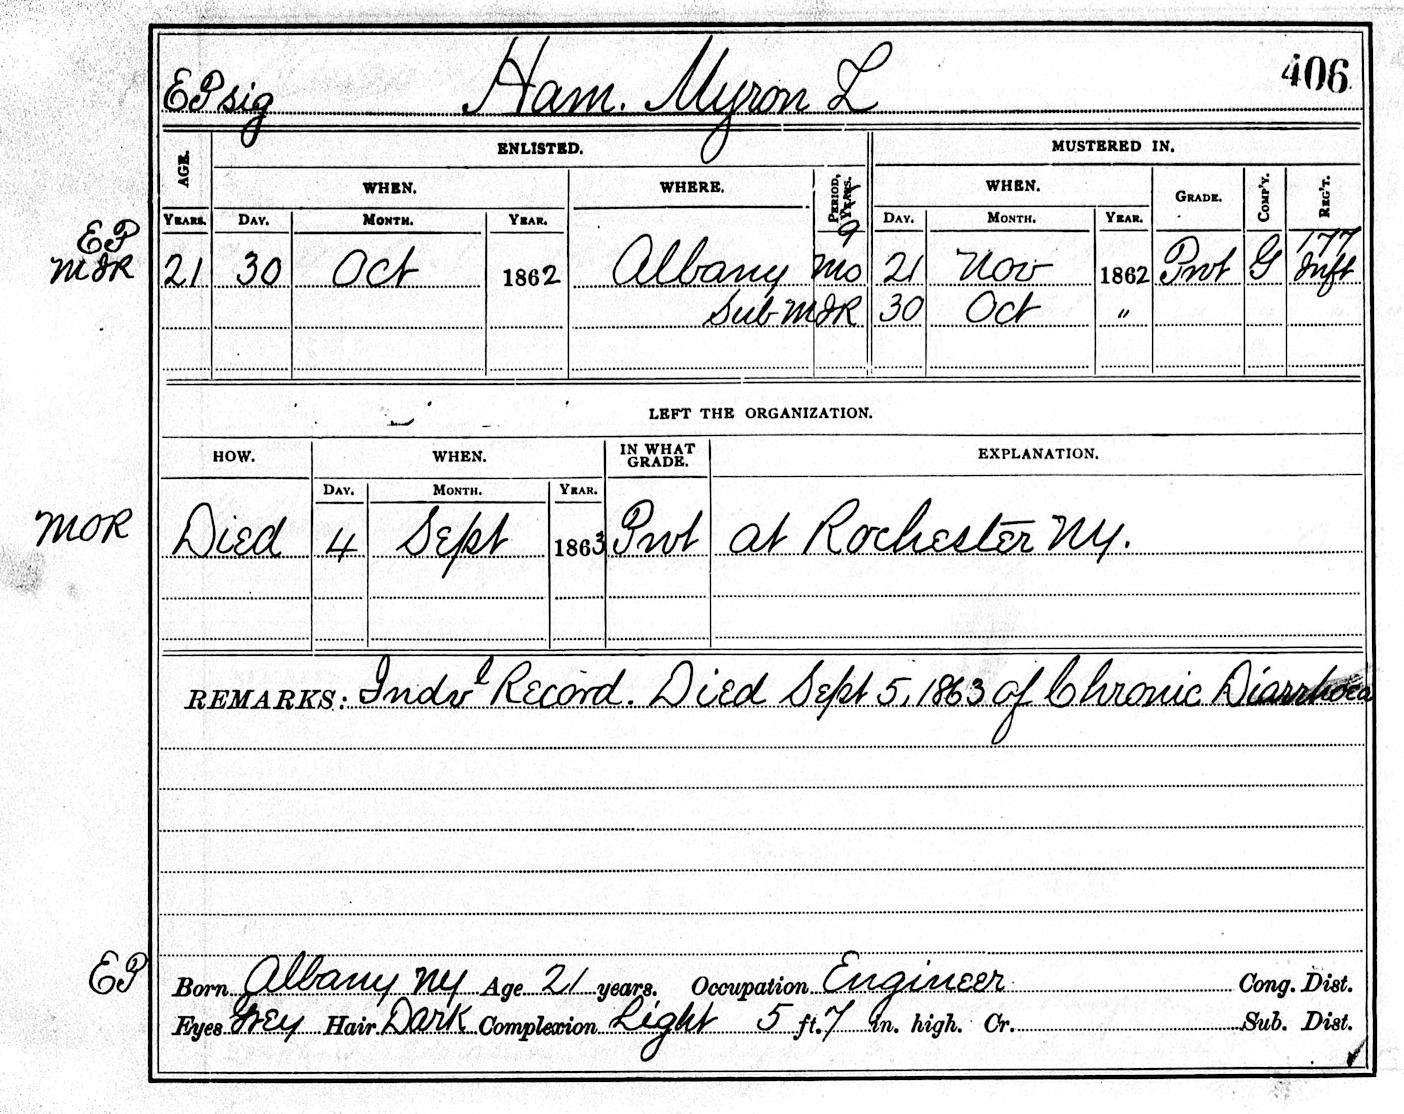 EP sig Ham. Myron L 406
AGE. ENLISTED. MUSTERED IN.
WHEN. WHERE. PERIOD, YEARS. WHEN. GRADE. COMP'Y. REG'T.
YEARS. DAY. MONTH. YEAR. DAY. MONTH. YEAR.
EP 9 177
MIR 21 30 Oct 1862 Albany Mo 21 Nov 1862 Pvt G Inft
Sub MIR 30 Oct "
LEFT THE ORGANIZATION.
HOW. WHEN. IN WHAT GRADE. EXPLANATION.
DAY. MONTH. YEAR.
MOR Died 4 Sept 1863 Pvt at Rochester NY.
REMARKS: Indvl Record. Died Sept 5, 1863 of Chronic Diarrhoea
EP Born Albany NY Age 21 years. Occupation Engineer Cong. Dist.
Eyes Grey Hair Dark Complexion Light 5 ft. 7 in. high. Cr. Sub. Dist.